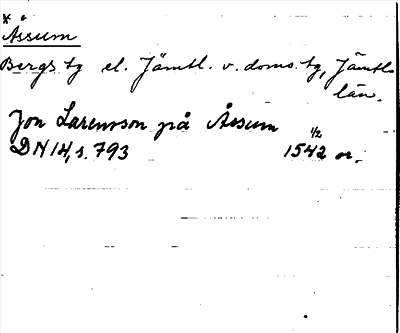 * Åssum
Bergs tg el. Jämtl. v. doms.tg, Jämtl.
län.
Jon Larensson på Åssum
DN 14, s. 793 1/2 1542 or.